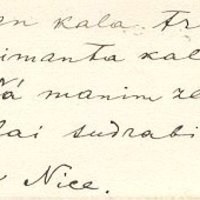 en kala tr
imanta kal
Tā manim ze
lai sudrabi
Nice.